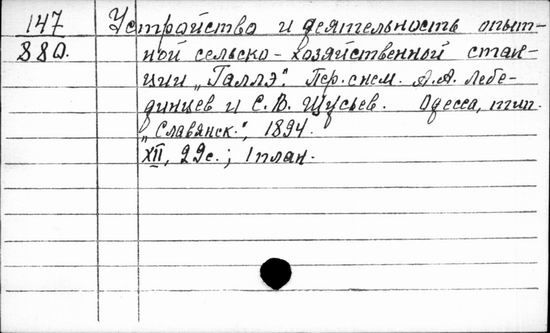 147 Устройство и деятельность опыт-
880. ной сельско-хозяйственной стан-
ции „Галлэ“. Пер. с нем. А.А. Лебе-
динцев и С.В. Щусьев. Одесса, тип.
„Славянск.“, 1894.
XII, 22с.; 1 план.